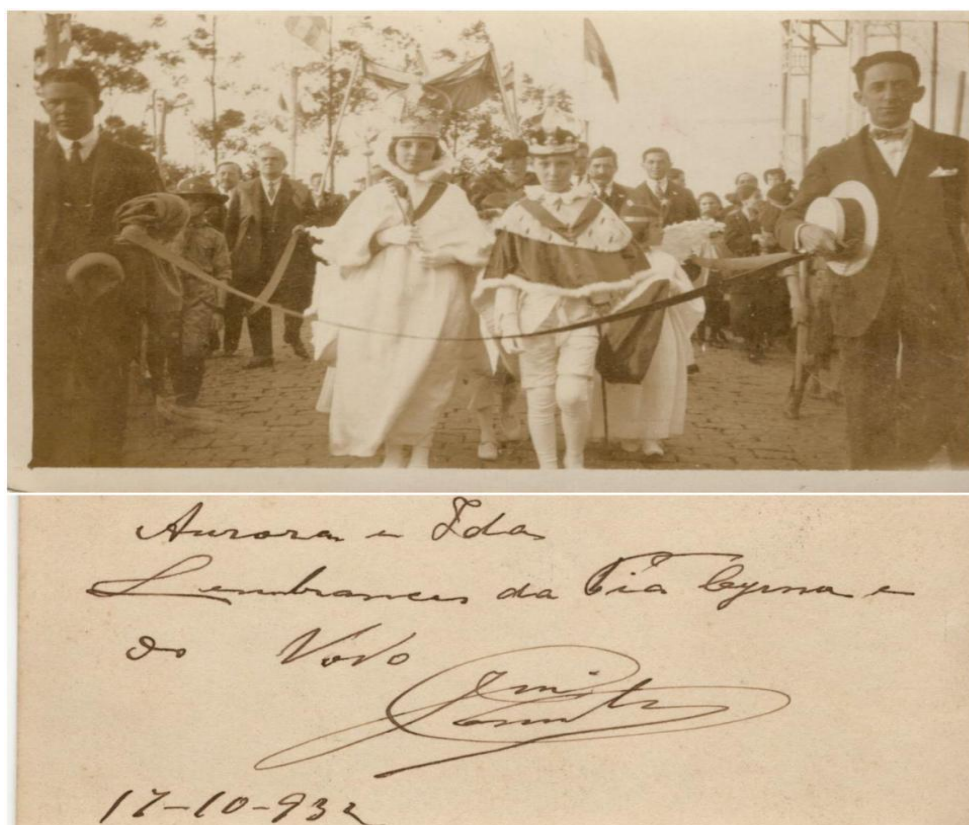 Aurora e Ida
Lembranças da Tia e
do Vovô
17-10-932